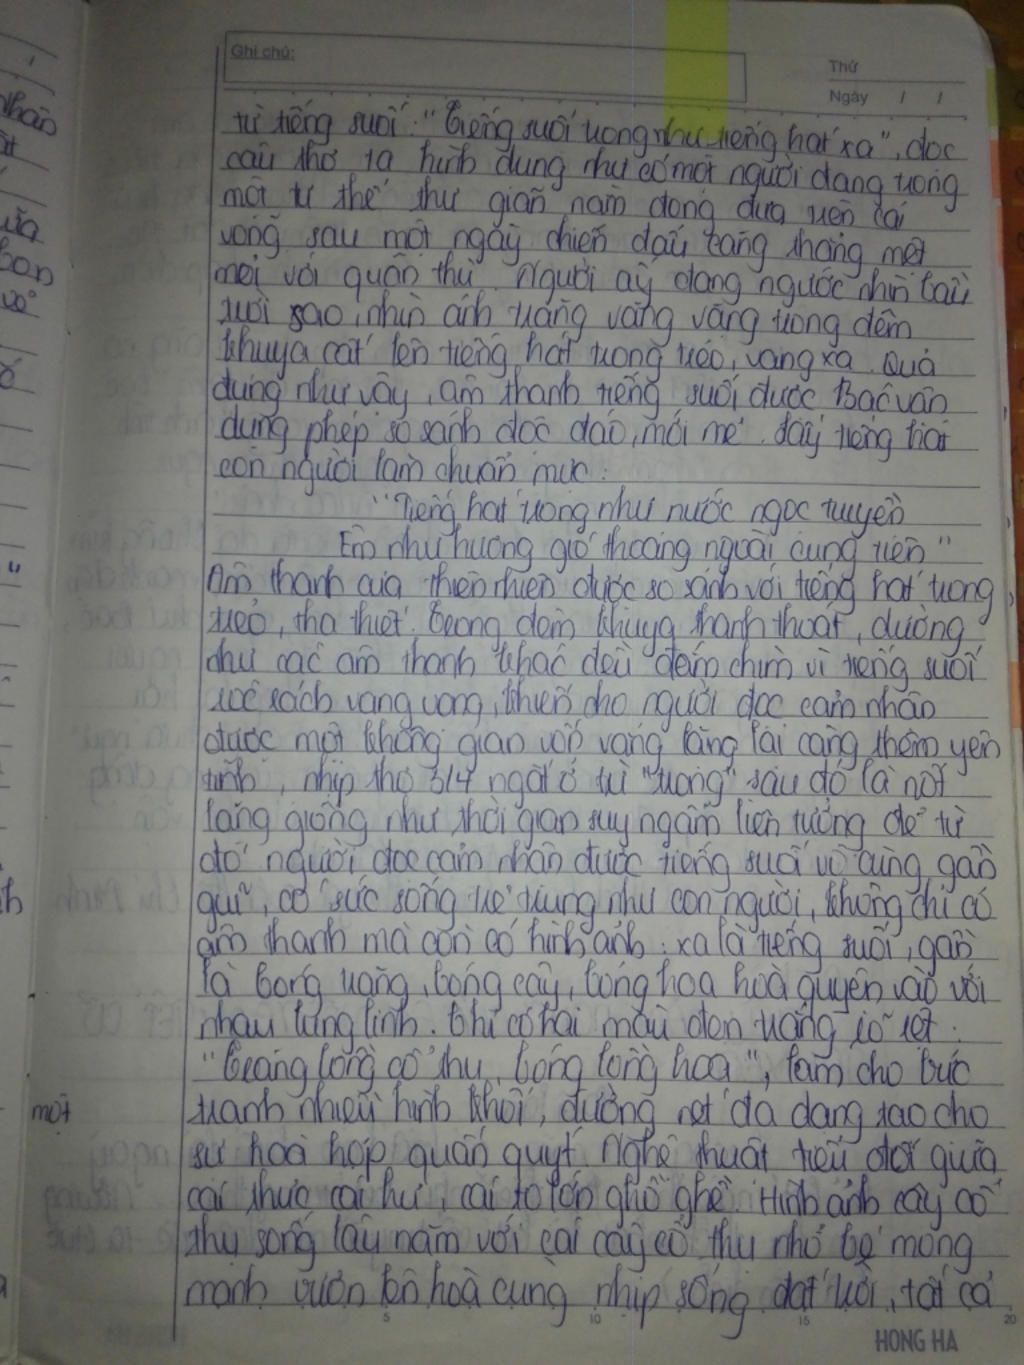 Ghi chú:
Thứ
Ngày / /
từ tiếng suối: "Tiếng suối trong như tiếng hát xa", đọc
câu thơ ta hình dung như có một người đang trong
một tư thế thư giãn nằm đong đưa trên cái
võng sau một ngày chiến đấu căng thẳng mệt
mỏi với quân thù. Người ấy đang ngước nhìn bầu
trời sao, nhìn ánh trăng vằng vặng trong đêm
khuya cất lên tiếng hát trong trẻo, vang xa. Quả
đúng như vậy, âm thanh tiếng suối được Bác vận
dụng phép so sánh độc đáo, mới mẻ. Lấy tiếng hát
con người làm chuẩn mực:
"Tiếng hát trong như nước ngọc tuyền
Êm như hương gió thoảng ngoài cung tiên"
Âm thanh của thiên nhiên được so sánh với tiếng hát trong
trẻo, tha thiết. Trong đêm khuya thanh thoát, dường
như các âm thanh khác đều đắm chìm vì tiếng suối
róc rách vang vọng, khiến cho người đọc cảm nhận
được một không gian vốn vắng lặng lại càng thêm yên
tĩnh, nhịp thơ 3/4 ngắt ở từ "trong" sau đó là nốt
lặng giống như thời gian suy ngẫm liên tưởng để từ
đó người đọc cảm nhận được tiếng suối vô cùng gần
gũi, có sức sống trẻ trung như con người, không chỉ có
âm thanh mà còn có hình ảnh: xa là tiếng suối, gần
là bóng trăng, bóng cây, bóng hoa hoà quyện vào với
nhau lung linh. Chỉ có hai màu đen trắng rõ rệt:
"Trăng lồng cổ thụ, bóng lồng hoa", làm cho bức
tranh nhiều hình khối, đường nét đa dạng sao cho
một
sự hoà hợp quấn quýt. Nghệ thuật tiểu đối giữa
cái thực cái hư, cái to lớn ghồ ghề. Hình ảnh cây cổ
thụ sống lâu năm với cái cây cổ thụ nhỏ bé mỏng
manh vườn hoà cùng nhịp sống đất trời, tất cả
5 10 15 20
HONG HA